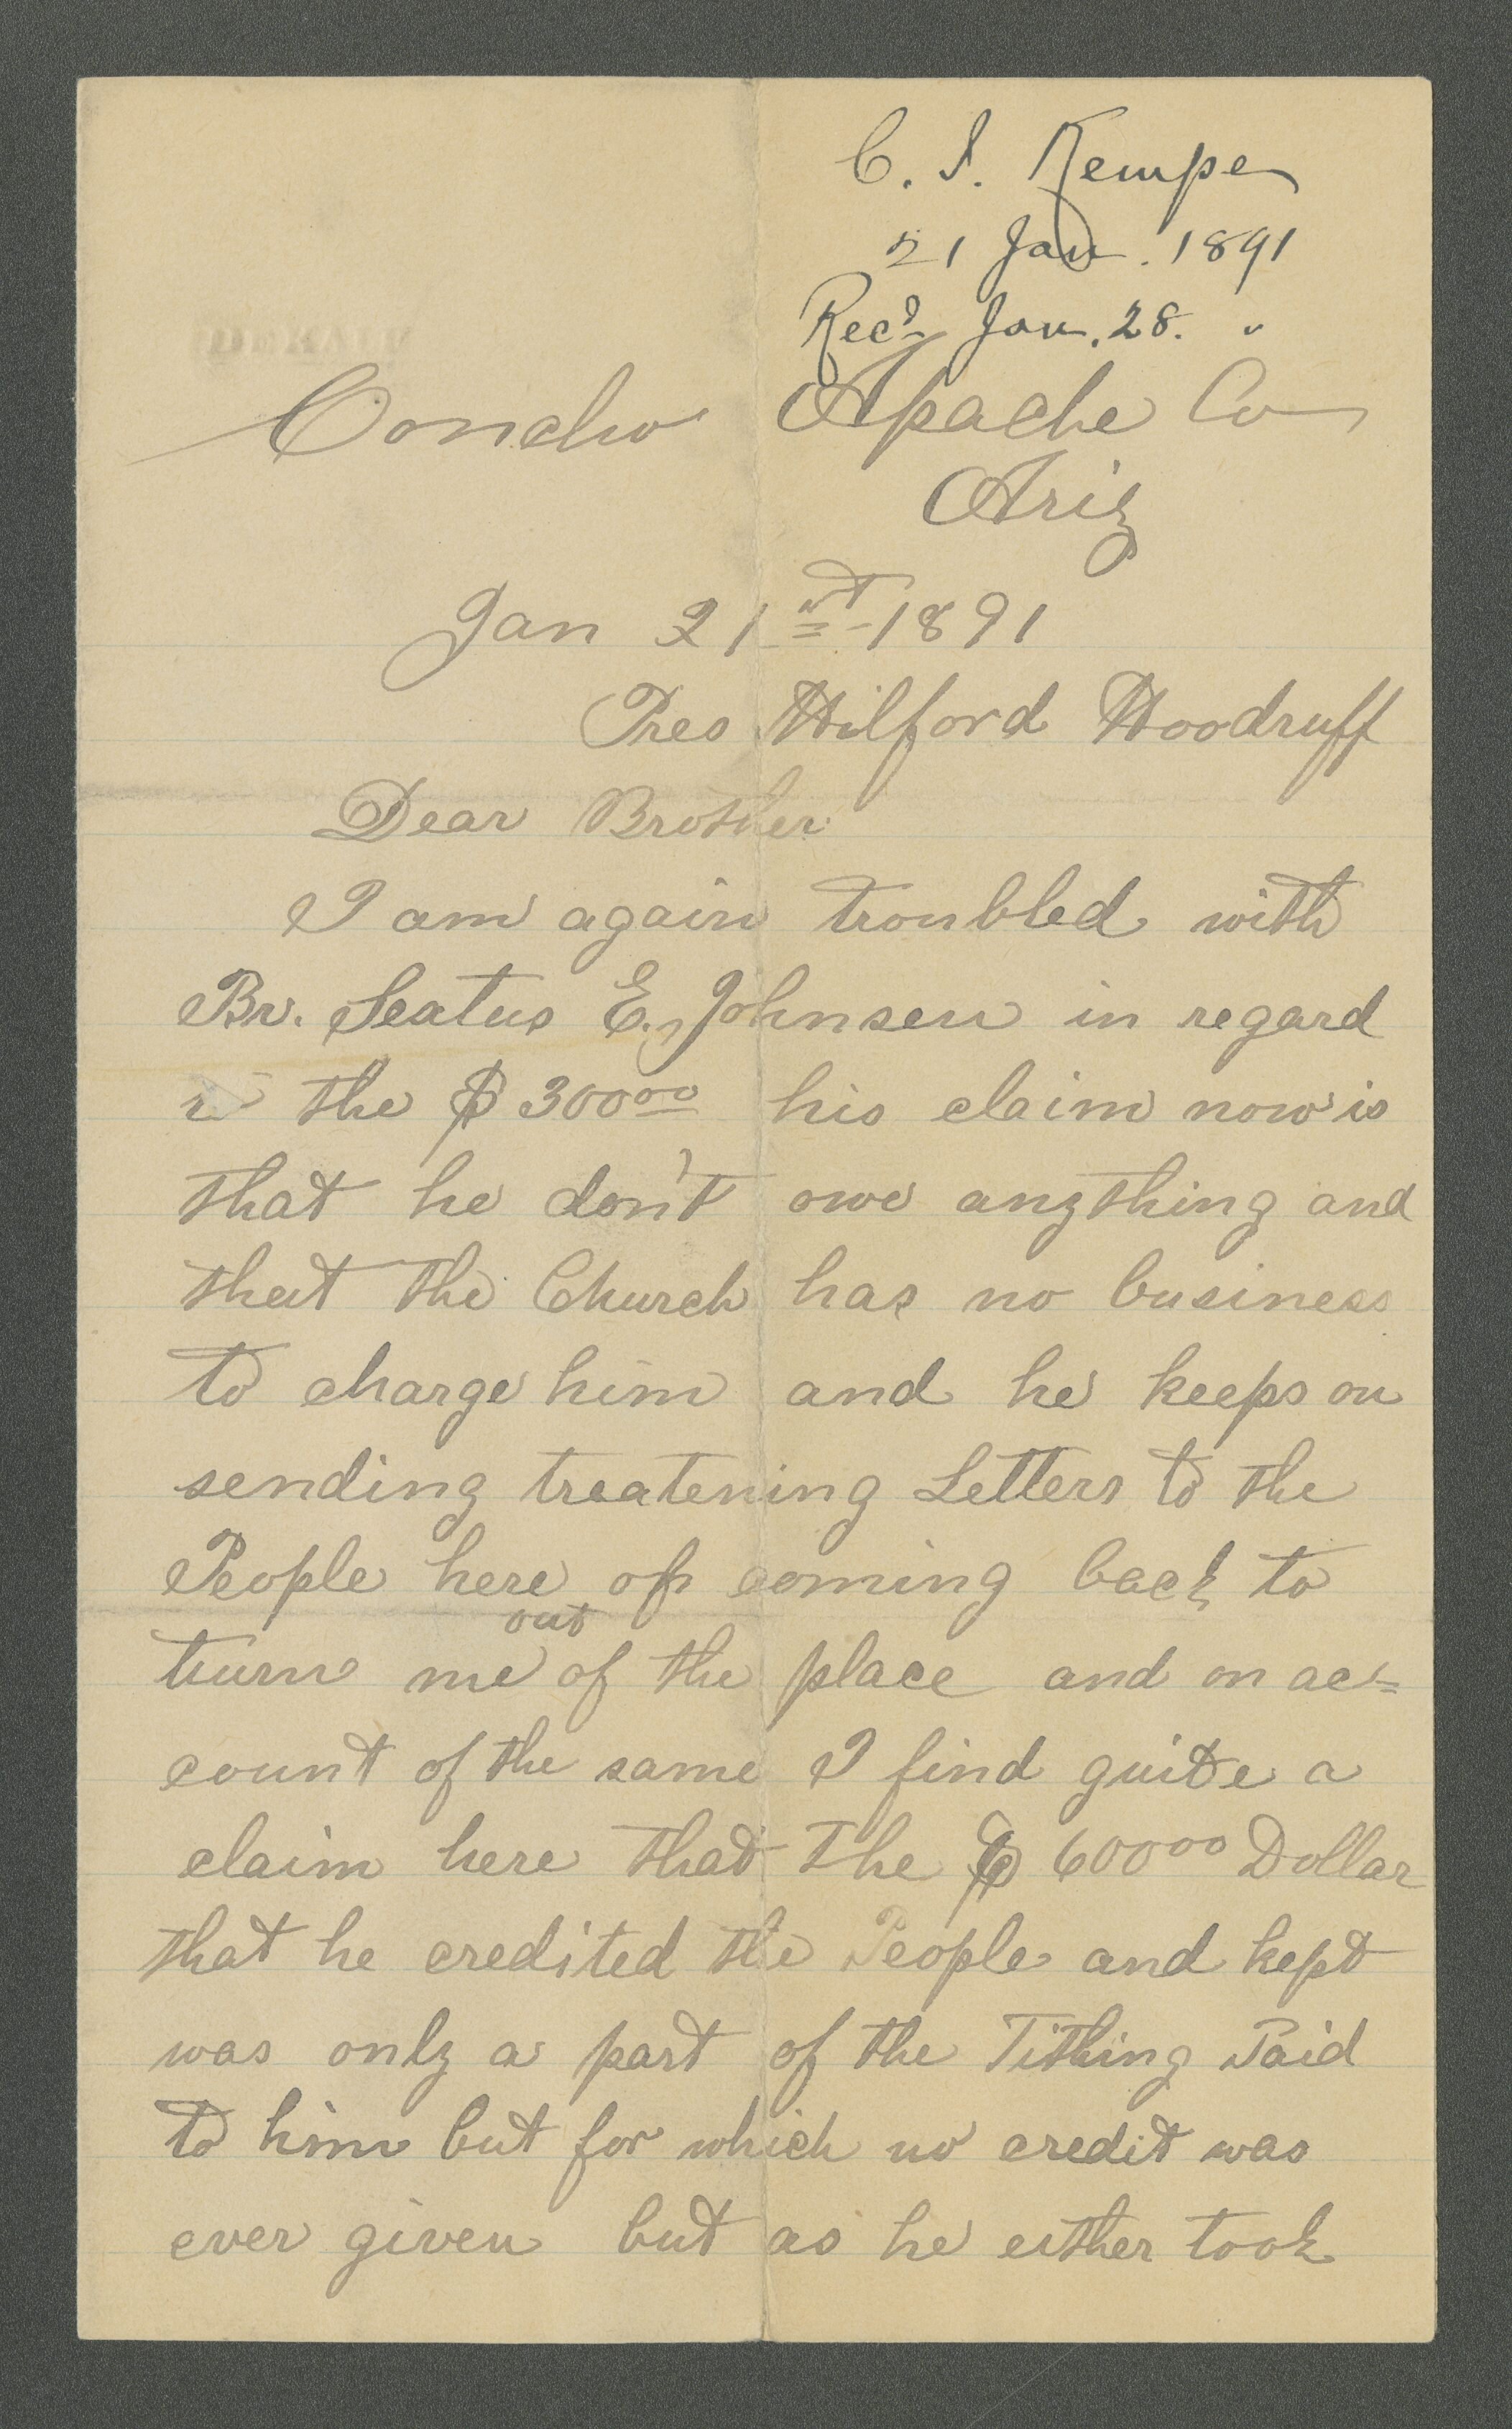 C. I. Kempe
21 Jan. 1891
Recd Jan. 28. "
Concho Apache Co
Ariz
Jan 21st 1891
Pres Wilford Woodruff
Dear Brother
I am again troubled with
Br. Seatus E. Johnsen in regard
the $ 300 00 his claim now is
that he don't owe anything and
that the Church has no business
to charge him and he keeps on
sending treatening Letters to the
People here of coming back to
turn me out of the place and on ac=
count of the same I find quite a
claim here that the $ 600 00 Dollar
that he credited the People and kept
was only a part of the Tithing Paid
to him but for which no credit was
ever given but as he either took